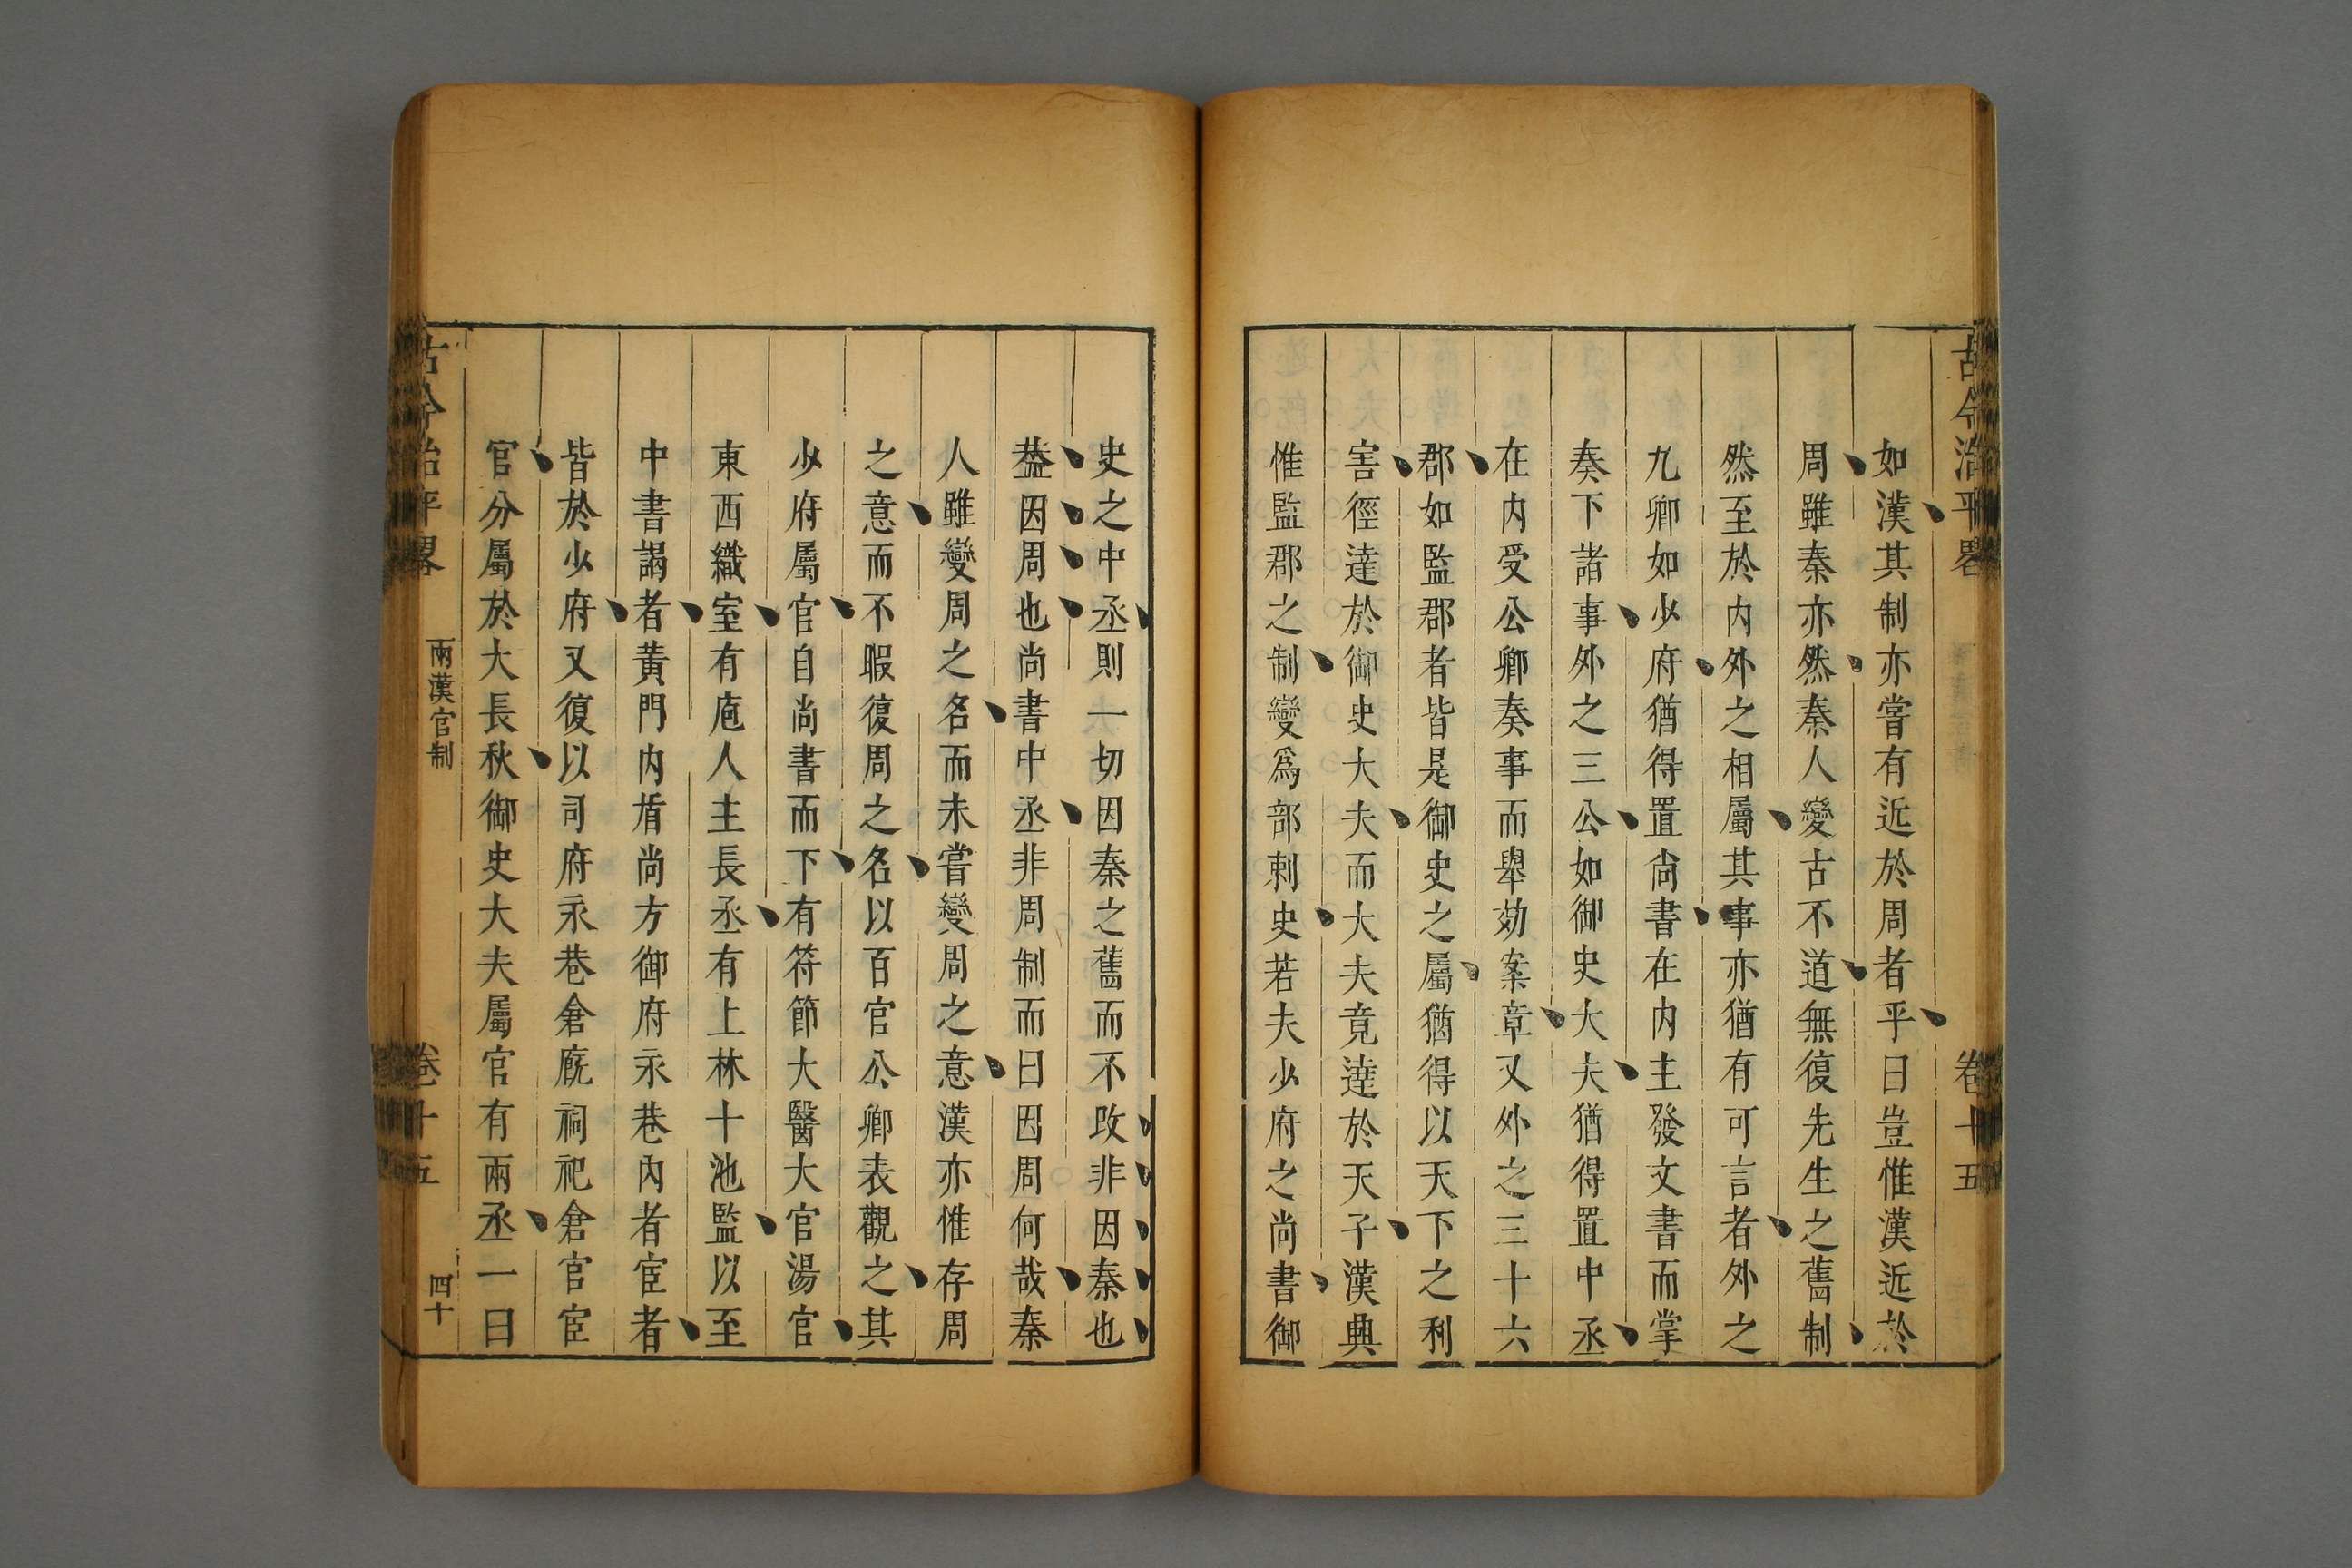 古今治平畧
卷十五
如漢其制亦嘗有近於周者乎曰豈惟漢近於
周雖秦亦然秦人變古不道無復先生之舊制
然至於內外之相屬其事亦猶有可言者外之
九卿如少府猶得置尚書在內主發文書而掌
奏下諸事外之三公如御史大夫猶得置中丞
在內受公卿奏事而舉劾案章又外之三十六
郡如監郡者皆是御史之屬猶得以天下之利
害徑達於御史大夫而大夫竟達於天子漢興
惟監郡之制變爲部刺史若夫少府之尚書御
史之中丞則一切因秦之舊而不改非因秦也
葢因周也尚書中丞非周制而曰因周何哉秦
人雖變周之名而未嘗變周之意漢亦惟存周
之意而不暇復周之名以百官公卿表觀之其
少府屬官自尚書而下有符節大醫大官湯官
東西織室有庖人主長丞有上林十池監以至
中書謁者黃門內盾尚方御府永巷內者宦者
皆於少府又復以司府永巷倉廐祠祀倉官宦
官分屬於大長秋御史大夫屬官有兩丞一曰
古今治平畧
兩漢官制
卷十五
四十